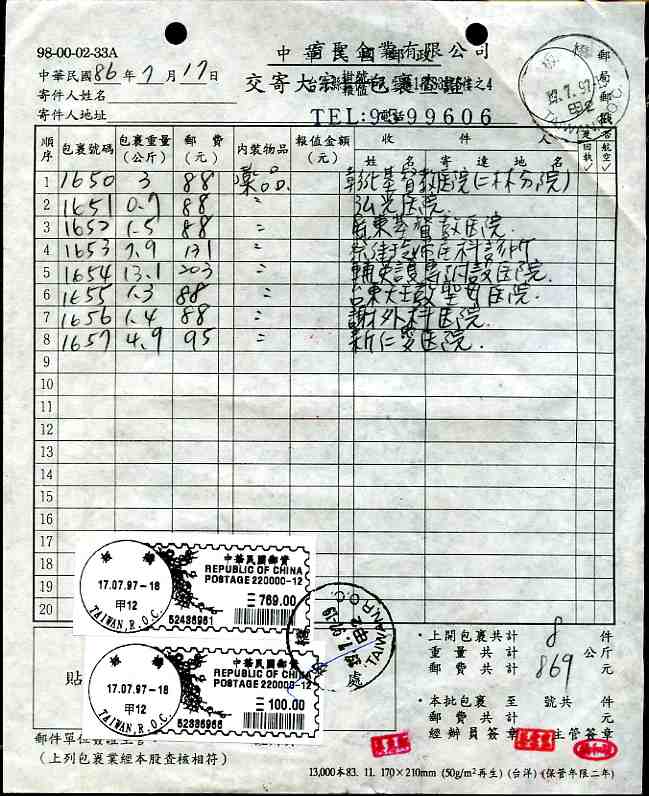 98-00-02-33A
中華民國86年7月17日
企業有限公司
寄件人姓名
交寄大宗包裹
寄件人地址
TEL:9 99606
順序 包裹號碼 包裹重量(公斤) 郵費(元) 內裝物品 報值金額(元) 收件人 姓名 寄達地名 回執 航空
1 1650 3 88 藥品. 彰化基督教医院(二林分院)
2 1651 0.7 88 〃 弘光医院.
3 1652 1.5 88 〃 屏東基督教医院.
4 1653 7.9 131 〃 診所
5 1654 13.1 203 〃 輔英 附設医院.
6 1655 1.3 88 〃 台東 聖母医院.
7 1656 1.4 88 〃 謝外科医院.
8 1657 4.9 95 〃 新仁愛医院.
9
10
11
12
13
14
15
16
17
18
19
20
17.07.97-18
甲12
TAIWAN, R.O.C.
中華民國郵資
REPUBLIC OF CHINA
POSTAGE 220000-12
769.00
52436961
17.07.97-18
甲12
TAIWAN, R.O.C.
中華民國郵資
REPUBLIC OF CHINA
POSTAGE 220000-12
100.00
52436966
TAIWAN R.O.C.
貼
處
上開包裹共計 8 件
重量共計 公斤
郵費共計 869 元
本批包裹 至 號共 件
郵費共計 元
經辦員簽章 主管簽章
郵件單位
(上列包裹業經本股查核相符)
13,000本83. 11. 170×210mm (50g/m²再生) (台洋) (保管年限二年)